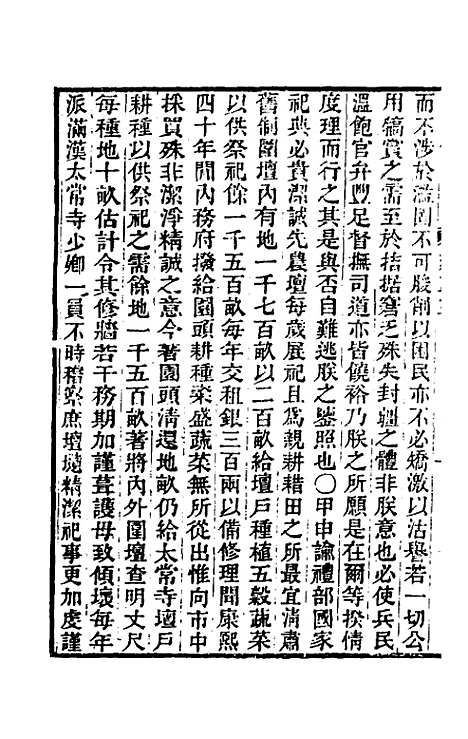 而不涉於濫固不可朘削以困民亦不必矯激以沽譽若一切公
用犒賞之需至於拮据窘乏殊失封疆之體非朕意也必使兵民
溫飽官弁豐足督撫司道亦皆饒裕乃朕之所願是在爾等揆情
度理而行之其是與否自難逃朕之鑒照也〇甲申諭禮部國家
祀典必貴潔誠先農壇每歲展祀且爲親耕耤田之所最宜清肅
舊制圍壇內有地一千七百畝以二百畝給壇戶種植五穀蔬菜
以供祭祀餘一千五百畝每年交租銀三百兩以備修理閒康熙
四十年閒內務府撥給園頭耕種粢盛蔬菜無所從出惟向市中
採買殊非潔淨精誠之意今著園頭淸還地畝仍給太常寺壇戶
耕種以供祭祀之需餘地一千五百畝著將內外圍壇查明丈尺
每種地十畝估計令其修牆若干務期加謹葺護毋致傾壞每年
派滿漢太常寺少卿一員不時稽察庶壇壝精潔祀事更加虔謹